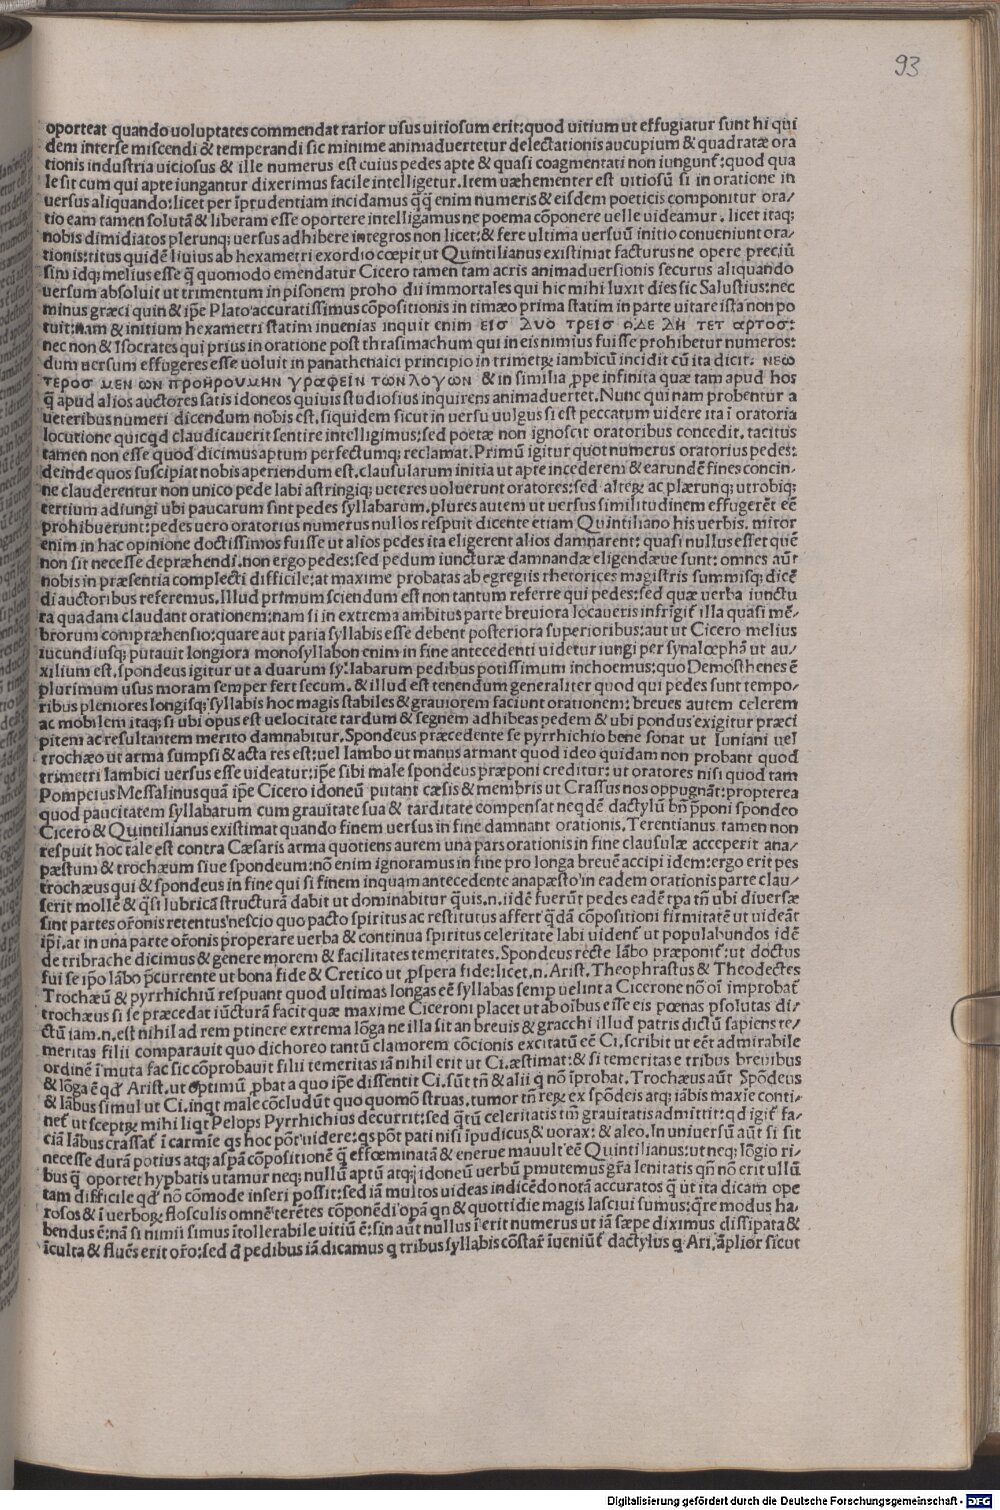 93
oporteat quando uoluptates commendat rarior usus uitiosum erit:quod uitium ut effugiatur sunt hi qui
dem interse miscendi & temperandi sic minime animaduertetur delectationis aucupium & quadratæ ora
tionis industria uiciosus & ille numerus est cuius pedes apte & quasi coagmentati non iungunt᷑:quod qua
le sit cum qui apte iungantur dixerimus facile intelligetur.Item uæhementer est uitiosũ si in oratione in
uersus aliquando:licet per ĩprudentiam incidamus q̃q̃ enim numeris & eisdem poeticis componitur ora/
tio eam tamen solutã & liberam esse oportere intelligamus ne poema cõponere uelle uideamur. licet itaq;
nobis dimidiatos plerunq; uersus adhibere integros non licet:& fere ultima uersuũ initio conueniunt ora/
tionis:titus quidẽ liuius ab hexametri exordio cœpit ut Quintilianus existimat facturus ne opere preciũ
sim idq; melius esse q̃ quomodo emendatur Cicero tamen tam acris animaduersionis securus aliquando
uersum absoluit ut trimentum in pisonem proho dii immortales qui hic mihi luxit dies sic Salustius:nec
minus græci quin & ip̃e Plato accuratissimus cõpositionis in timæo prima statim in parte uitare ista non po
tuit:nam & initium hexametri statim inuenias inquit enim εισ δυο τρεισ οδε δη τετ αρτοσ:
nec non & Isocrates qui prius in oratione post thrasimachum qui in eis nimius fuisse prohibetur numeros:
dum uersum effugeres esse uoluit in panathenaici principio in trimetꝝ iambicũ incidit cũ ita dicit: νεω
τεροσ μεν ων προηρουμην γραφειν των λογων & in similia ꝓpe infinita quæ tam apud hos
q̃ apud alios auctores satis idoneos quiuis studiosius inquirens animaduertet.Nunc qui nam probentur a
ueteribus numeri dicendum nobis est.siquidem sicut in uersu uulgus si est peccatum uidere ita ĩ oratoria
locutione quicqd claudicauerit sentire intelligimus:sed poetæ non ignoscit oratoribus concedit. tacitus
tamen non esse quod dicimus aptum perfectumq; reclamat.Primũ igitur quot numerus oratorius pedes:
deinde quos suscipiat nobis aperiendum est.clausularum initia ut apte incederem & earundẽ fines concin-
ne clauderentur non unico pede labi astringiq; ueteres uoluerunt oratores:sed alteꝝ ac plærunq; utrobiq;
tertium adiungi ubi paucarum sint pedes syllabarum.plures autem ut uersus similitudinem effugerẽt eẽ
prohibuerunt:pedes uero oratorius numerus nullos respuit dicente etiam Quintiliano his uerbis. miror
enim in hac opinione doctissimos fuisse ut alios pedes ita eligerent alios damnarent: quasi nullus esset quẽ
non sit necesse depræhendi.non ergo pedes:sed pedum iuncturæ damnandæ eligendæue sunt: omnes aũt
nobis in præsentia complecti difficile:at maxime probatas ab egregiis rhetorices magistris summisq; dicẽ
di auctoribus referemus.Illud primum sciendum est non tantum referre qui pedes:sed quæ uerba iunctu
ra quadam claudant orationem:nam si in extrema ambitus parte breuiora locaueris infrigit᷑ illa quasi mẽ-
brorum compræhensio:quare aut paria syllabis esse debent posteriora superioribus:aut ut Cicero melius
iucundiusq; putauit longiora monosyllabon enim in fine antecedenti uidetur iungi per synalœphã ut au/
xilium est.spondeus igitur ut a duarum syllabarum pedibus potissimum inchoemus:quo Demosthenes ẽ
plurimum usus moram semper fert secum. & illud est tenendum generaliter quod qui pedes sunt tempo/
ribus pleniores longisq; syllabis hoc magis stabiles & grauiorem faciunt orationem: breues autem celerem
ac mobilem itaq; si ubi opus est uelocitate tardum & segnem adhibeas pedem & ubi pondus exigitur præci
pitem ac resultantem merito damnabitur.Spondeus præcedente se pyrrhichio bene sonat ut Iuniani uel
trochæo ut arma sumpsi & acta res est:uel Iambo ut manus armant quod ideo quidam non probant quod
trimetri Iambici uersus esse uideatur:ip̃e sibi male spondeus præponi creditur: ut oratores nisi quod tam
Pompeius Messalinus quã ip̃e Cicero idoneũ putant cæsis & membris ut Crassus nos oppugnãt:propterea
quod paucitatem syllabarum cum grauitate sua & tarditate compensat neqdẽ dactylũ bñ p̃poni spondeo
Cicero & Quintilianus existimat quando finem uersus in fine damnant orationis.Terentianus tamen non
respuit hoc tale est contra Cæsaris arma quotiens autem una pars orationis in fine clausulæ acceperit ana/
pæstum & trochæum siue spondeum:nõ enim ignoramus in fine pro longa breuẽ accipi idem:ergo erit pes
trochæus qui & spondeus in fine qui si finem inquam antecedente anapæsto in eadem orationis parte clau/
serit mollẽ & q̃si lubricã structurã dabit ut dominabitur q̃uis.n.iidẽ fuerũt pedes eadẽ tp̃a tñ ubi diuersæ
sint partes or̃onis retentus nescio quo pacto spiritus ac restitutus affert q̃dã cõpositioni firmitatẽ ut uideãt
ip̃i.at in una parte or̃onis p̃roperare uerba & continua spiritus celeritate labi uident᷑ ut populabundos idẽ
de tribrache dicimus & genere morem & facilitates temeritates.Spondeus recte Iãbo præponit᷑:ut doctus
fui se ip̃o Iãbo p̃currente ut bona fide & Cretico ut ꝓspera fide:licet.n.Arist.Theophrastus & Theodectes
Trochæũ & pyrrhichiũ respuant quod ultimas longas eẽ syllabas semp uelint a Cicerone nõ oĩ improbat᷑
trochæus si se præcedat iũcturã facit quæ maxime Ciceroni placet ut aboibus esse eis pœnas psolutas di/
ctũ iam.n.est nihil ad rem ptinere extrema lõga ne illa sit an breuis & gracchi illud patris dictũ sapiens te/
meritas filii comparauit quo dichoreo tantũ clamorem cõcionis excitatũ eẽ Ci.scribit ut eẽt admirabile
ordinẽ ĩmuta fac sic cõprobauit filii temeritas iã nihil erit ut Ci.æstimat:& si temeritas e tribus breuibus
& lõga ẽ qd᷑ Arist.ut optimũ ꝓbat a quo ip̃e dissentit Ci.sũt tñ & alii q nõ ĩprobat.Trochæus aũt Spõdeus
& Iãbus simul ut Ci.inqt male cõcludũt quo quomõ struas.tumor tñ reꝝ ex spõdeis atq; iãbis maxie conti-
net᷑ ut sceptꝝ mihi liqt Pelops Pyrrhichius decurrit:sed q̃tũ celeritatis tm̃ grauitatis admittit:qd igit᷑ fa-
ciã Iãbus crassat᷑ ĩ carmĩe qs hoc põt uidere:qs põt pati nisi ĩpudicus & uorax: & aleo.In uniuersũ aũt si sit
necesse durã potius atq; aspã cõpositionẽ q̃ effœminatã & enerue mauult eẽ Quintilianus:ut neq; lõgio ri-
bus q̃ oportet hypbatis utamur neq; nullũ aptũ atq; idoneũ uerbũ pmutemus gr̃a lenitatis qñ nõ erit ullũ
tam difficile qd᷑ nõ cõmode inseri possit:sed iã multos uideas indicẽdo notã accuratos q̃ ut ita dicam ope
rosos & ĩ uerboꝝ flosculis omnẽ terẽtes cõponẽdi opã qn & quottidie magis lasciui sumus:q̃re modus ha-
bendus ẽ:nã si nimii simus ĩtollerabile uitiũ ẽ:sin aũt nullus ĩ erit numerus ut iã sæpe diximus dissipata &
ĩculta & fluẽs erit or̃o:sed d̃ pedibus iã dicamus q tribus syllabis cõstar̃ ĩueniũt᷑ dactylus q Ari.ãplior̃ sicut
Digitalisierung gefördert durch die Deutsche Forschungsgemeinschaft - DFG